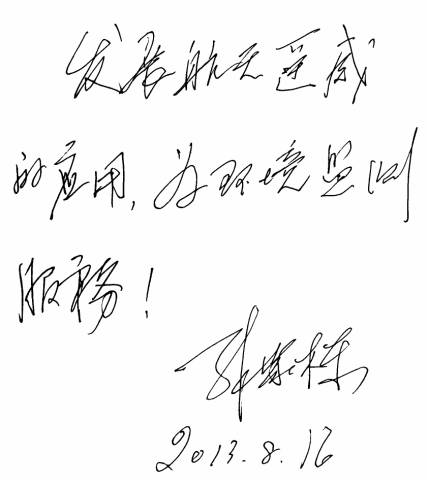 发展航天遥感
的应用,为环境监测
服务!
孙家栋
2013.8.16